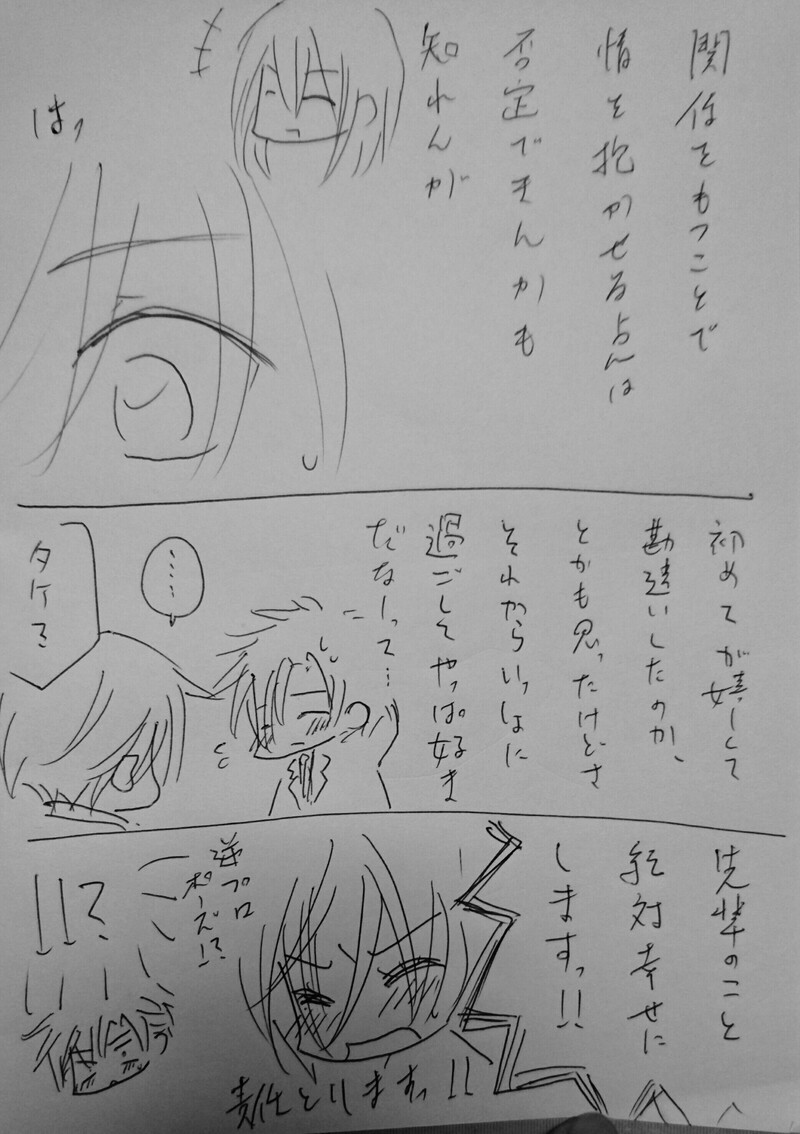 関係をもつことで
情を抱かせる点は
否定できんかも
知れんが
はっ
初めてが嬉しくて
勘違いしたのか、
とかも思ったけどさ
それからいっしょに
過ごしてやっぱ好きま
だなーって…
……
タケマ
先輩のこと
絶対幸せに
しますっ!!
責任とりますっ!!
逆プロ
ポーズ!?
!!?